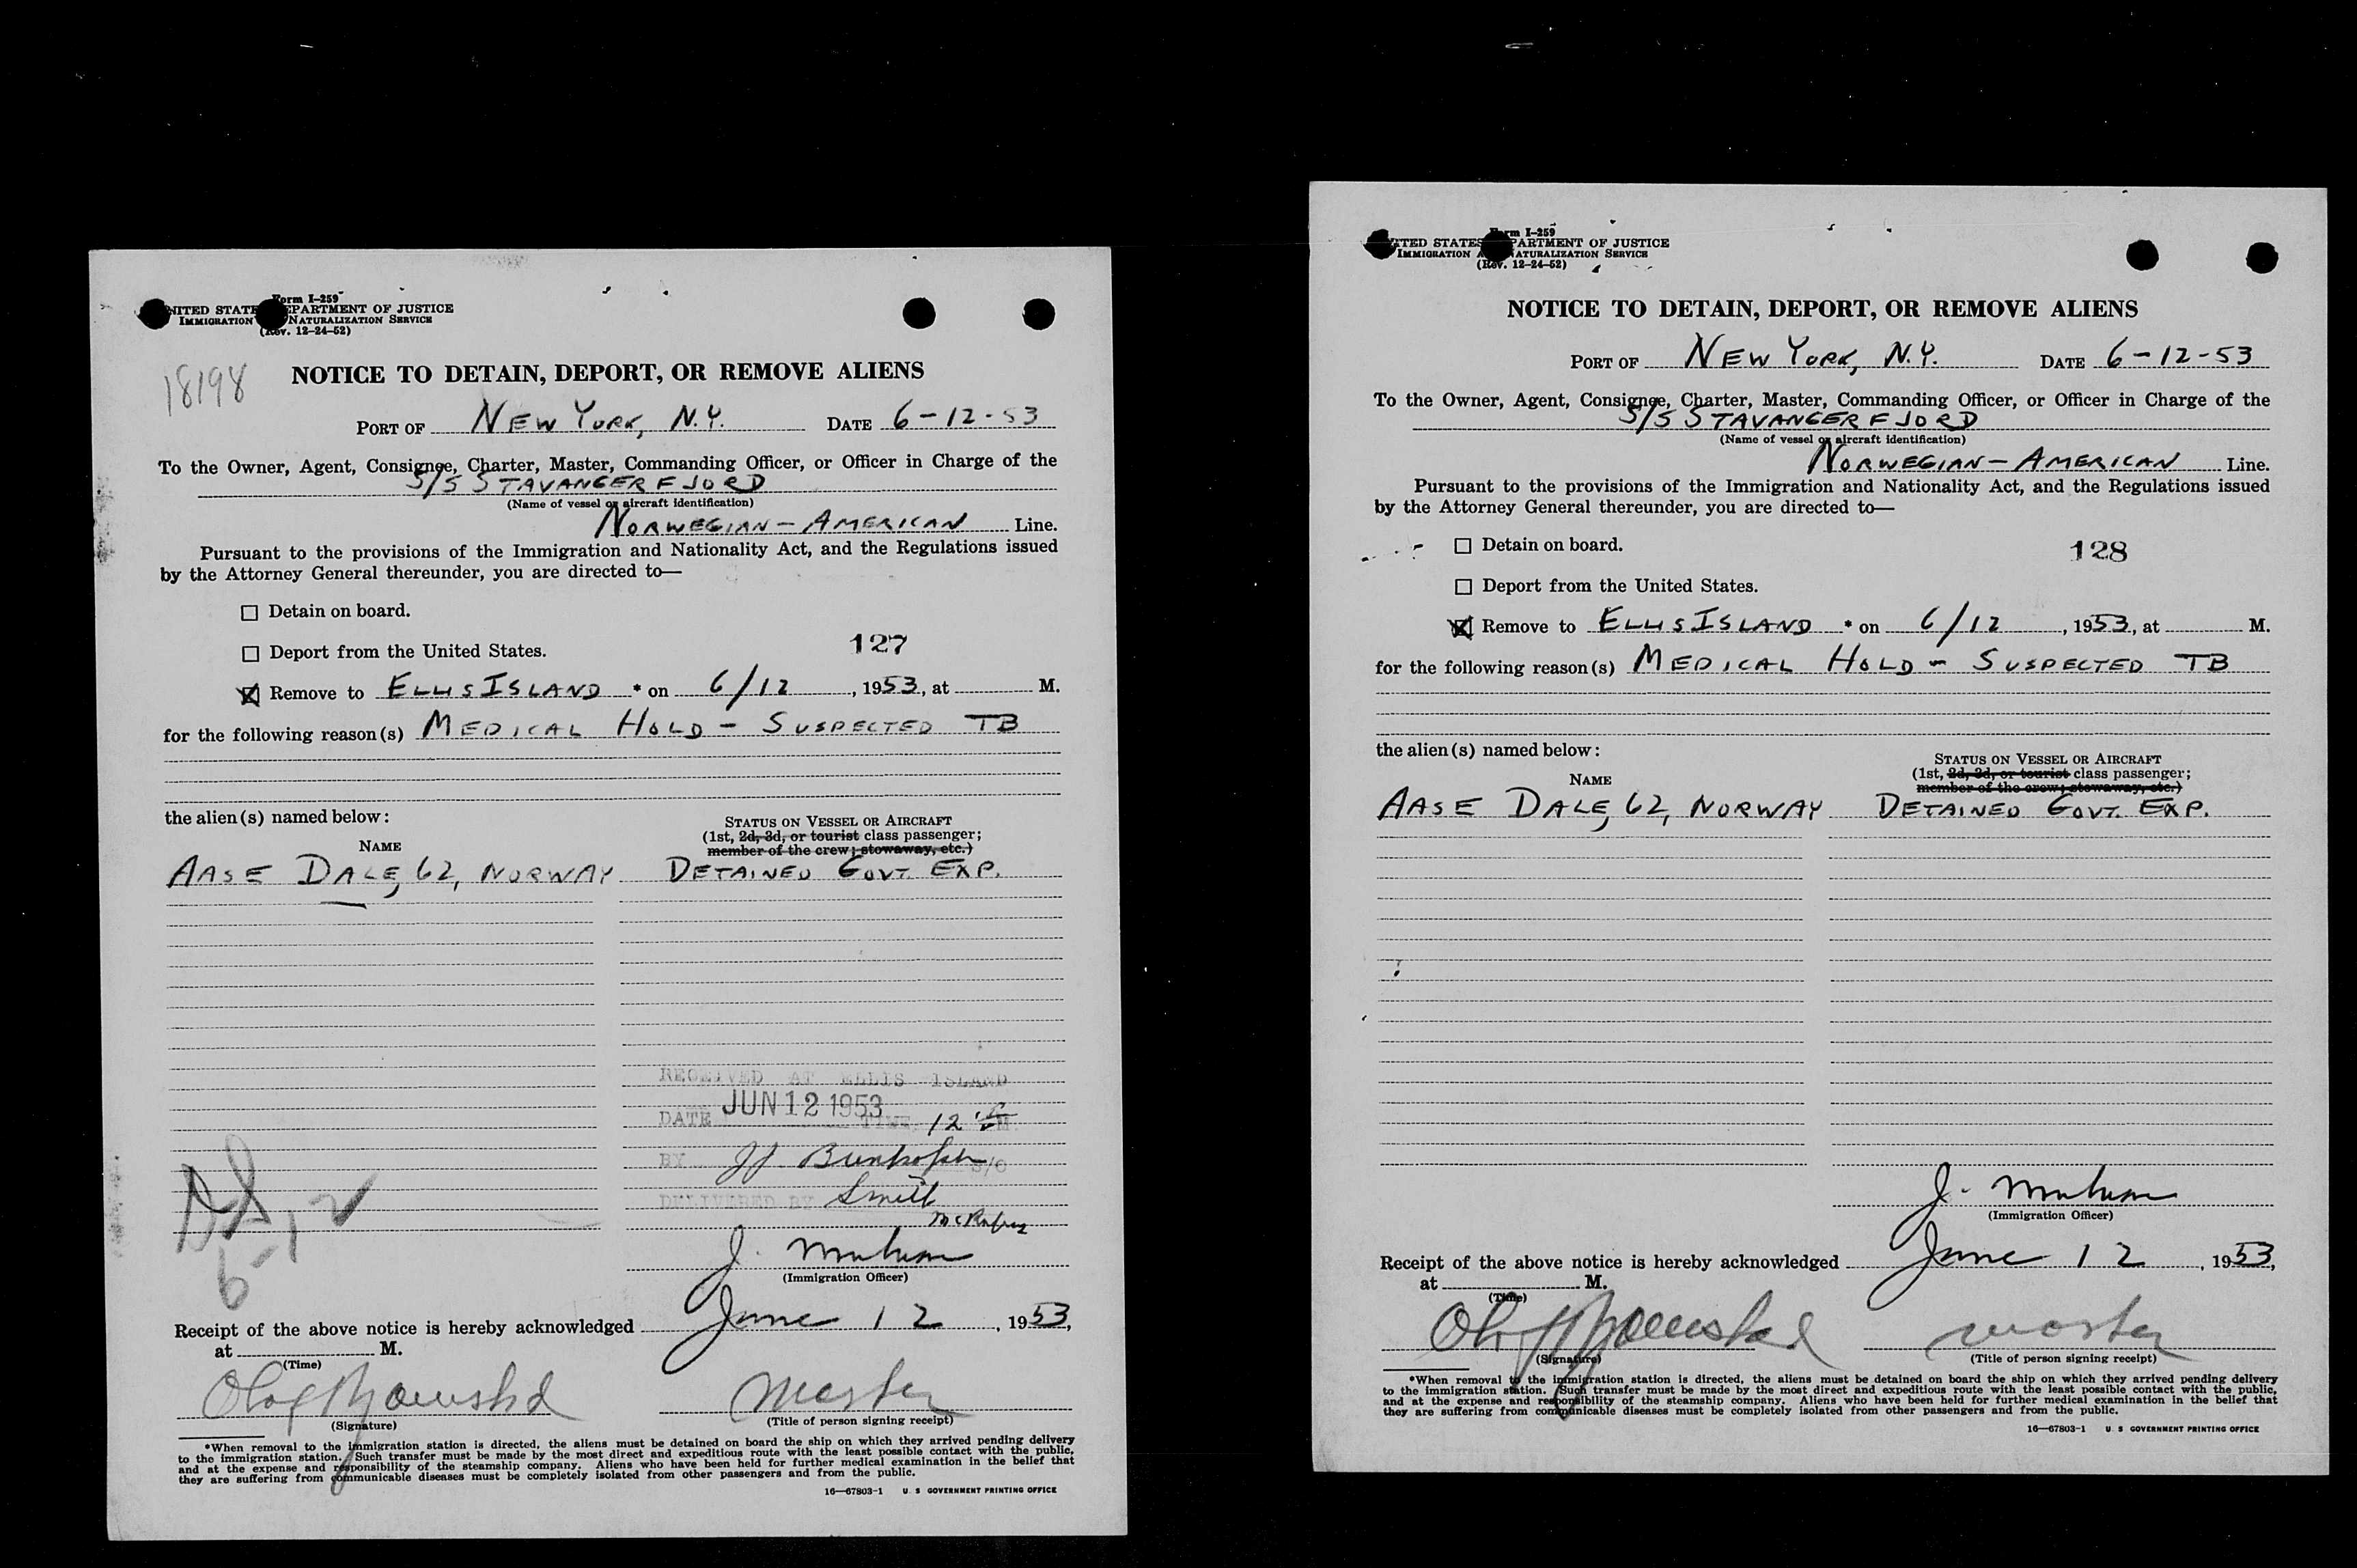 Form I-259
UNITED STATES DEPARTMENT OF JUSTICE
IMMIGRATION NATURALIZATION SERVICE
(Rev. 12-24-52)
18198
NOTICE TO DETAIN, DEPORT, OR REMOVE ALIENS
PORT OF NEW YORK, N.Y. DATE 6-12-53
To the Owner, Agent, Consignee, Charter, Master, Commanding Officer, or Officer in Charge of the
S/S STAVANGERFJORD
(Name of vessel or aircraft identification)
NORWEGIAN-AMERICAN Line.
Pursuant to the provisions of the Immigration and Nationality Act, and the Regulations issued
by the Attorney General thereunder, you are directed to—
☐ Detain on board.
☐ Deport from the United States. 127
☒ Remove to ELLIS ISLAND * on 6/12, 1953, at M.
for the following reason(s) MEDICAL HOLD - SUSPECTED TB
the alien(s) named below:
NAME
STATUS ON VESSEL OR AIRCRAFT
(1st, 2d, 3d, or tourist class passenger;
member of the crew; stowaway, etc.)
AASE DALE, 62, NORWAY DETAINED GOVT. EXP.
RECEIVED AT ELLIS ISLAND
DATE JUN 12 1953 TIME 12
BY
DELIVERED BY Smith
6-12
J.
(Immigration Officer)
Receipt of the above notice is hereby acknowledged June 12, 1953,
at M.
(Time)
Olaf Master
(Signature) (Title of person signing receipt)
*When removal to the immigration station is directed, the aliens must be detained on board the ship on which they arrived pending delivery
to the immigration station. Such transfer must be made by the most direct and expeditious route with the least possible contact with the public,
and at the expense and responsibility of the steamship company. Aliens who have been held for further medical examination in the belief that
they are suffering from communicable diseases must be completely isolated from other passengers and from the public.
16—67803-1 U. S GOVERNMENT PRINTING OFFICE
Form I-259
UNITED STATES DEPARTMENT OF JUSTICE
IMMIGRATION NATURALIZATION SERVICE
(Rev. 12-24-52)
NOTICE TO DETAIN, DEPORT, OR REMOVE ALIENS
PORT OF NEW YORK, N.Y. DATE 6-12-53
To the Owner, Agent, Consignee, Charter, Master, Commanding Officer, or Officer in Charge of the
S/S STAVANGERFJORD
(Name of vessel or aircraft identification)
NORWEGIAN-AMERICAN Line.
Pursuant to the provisions of the Immigration and Nationality Act, and the Regulations issued
by the Attorney General thereunder, you are directed to—
☐ Detain on board. 128
☐ Deport from the United States.
☒ Remove to ELLIS ISLAND * on 6/12, 1953, at M.
for the following reason(s) MEDICAL HOLD - SUSPECTED TB
the alien(s) named below:
NAME
STATUS ON VESSEL OR AIRCRAFT
(1st, 2d, 3d, or tourist class passenger;
member of the crew; stowaway, etc.)
AASE DALE, 62, NORWAY DETAINED GOVT. EXP.
J.
(Immigration Officer)
Receipt of the above notice is hereby acknowledged June 12, 1953,
at M.
(Time)
Olaf Master
(Signature) (Title of person signing receipt)
*When removal to the immigration station is directed, the aliens must be detained on board the ship on which they arrived pending delivery
to the immigration station. Such transfer must be made by the most direct and expeditious route with the least possible contact with the public,
and at the expense and responsibility of the steamship company. Aliens who have been held for further medical examination in the belief that
they are suffering from communicable diseases must be completely isolated from other passengers and from the public.
16—67803-1 U. S GOVERNMENT PRINTING OFFICE